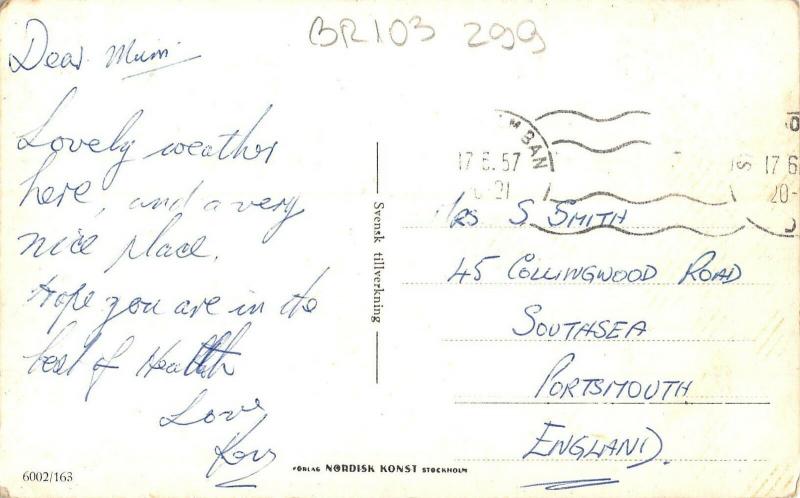 BR103 299
Dear Mum
Lovely weather
here, and a very
nice place.
Hope you are in the
best of Health
Love
6002/163
Svensk tillverkning
FÖRLAG NORDISK KONST STOCKHOLM
BAN
17 6.57
21
17 6
20-
S SMITH
45 COLLINGWOOD ROAD
SOUTHSEA
PORTSMOUTH
ENGLAND.